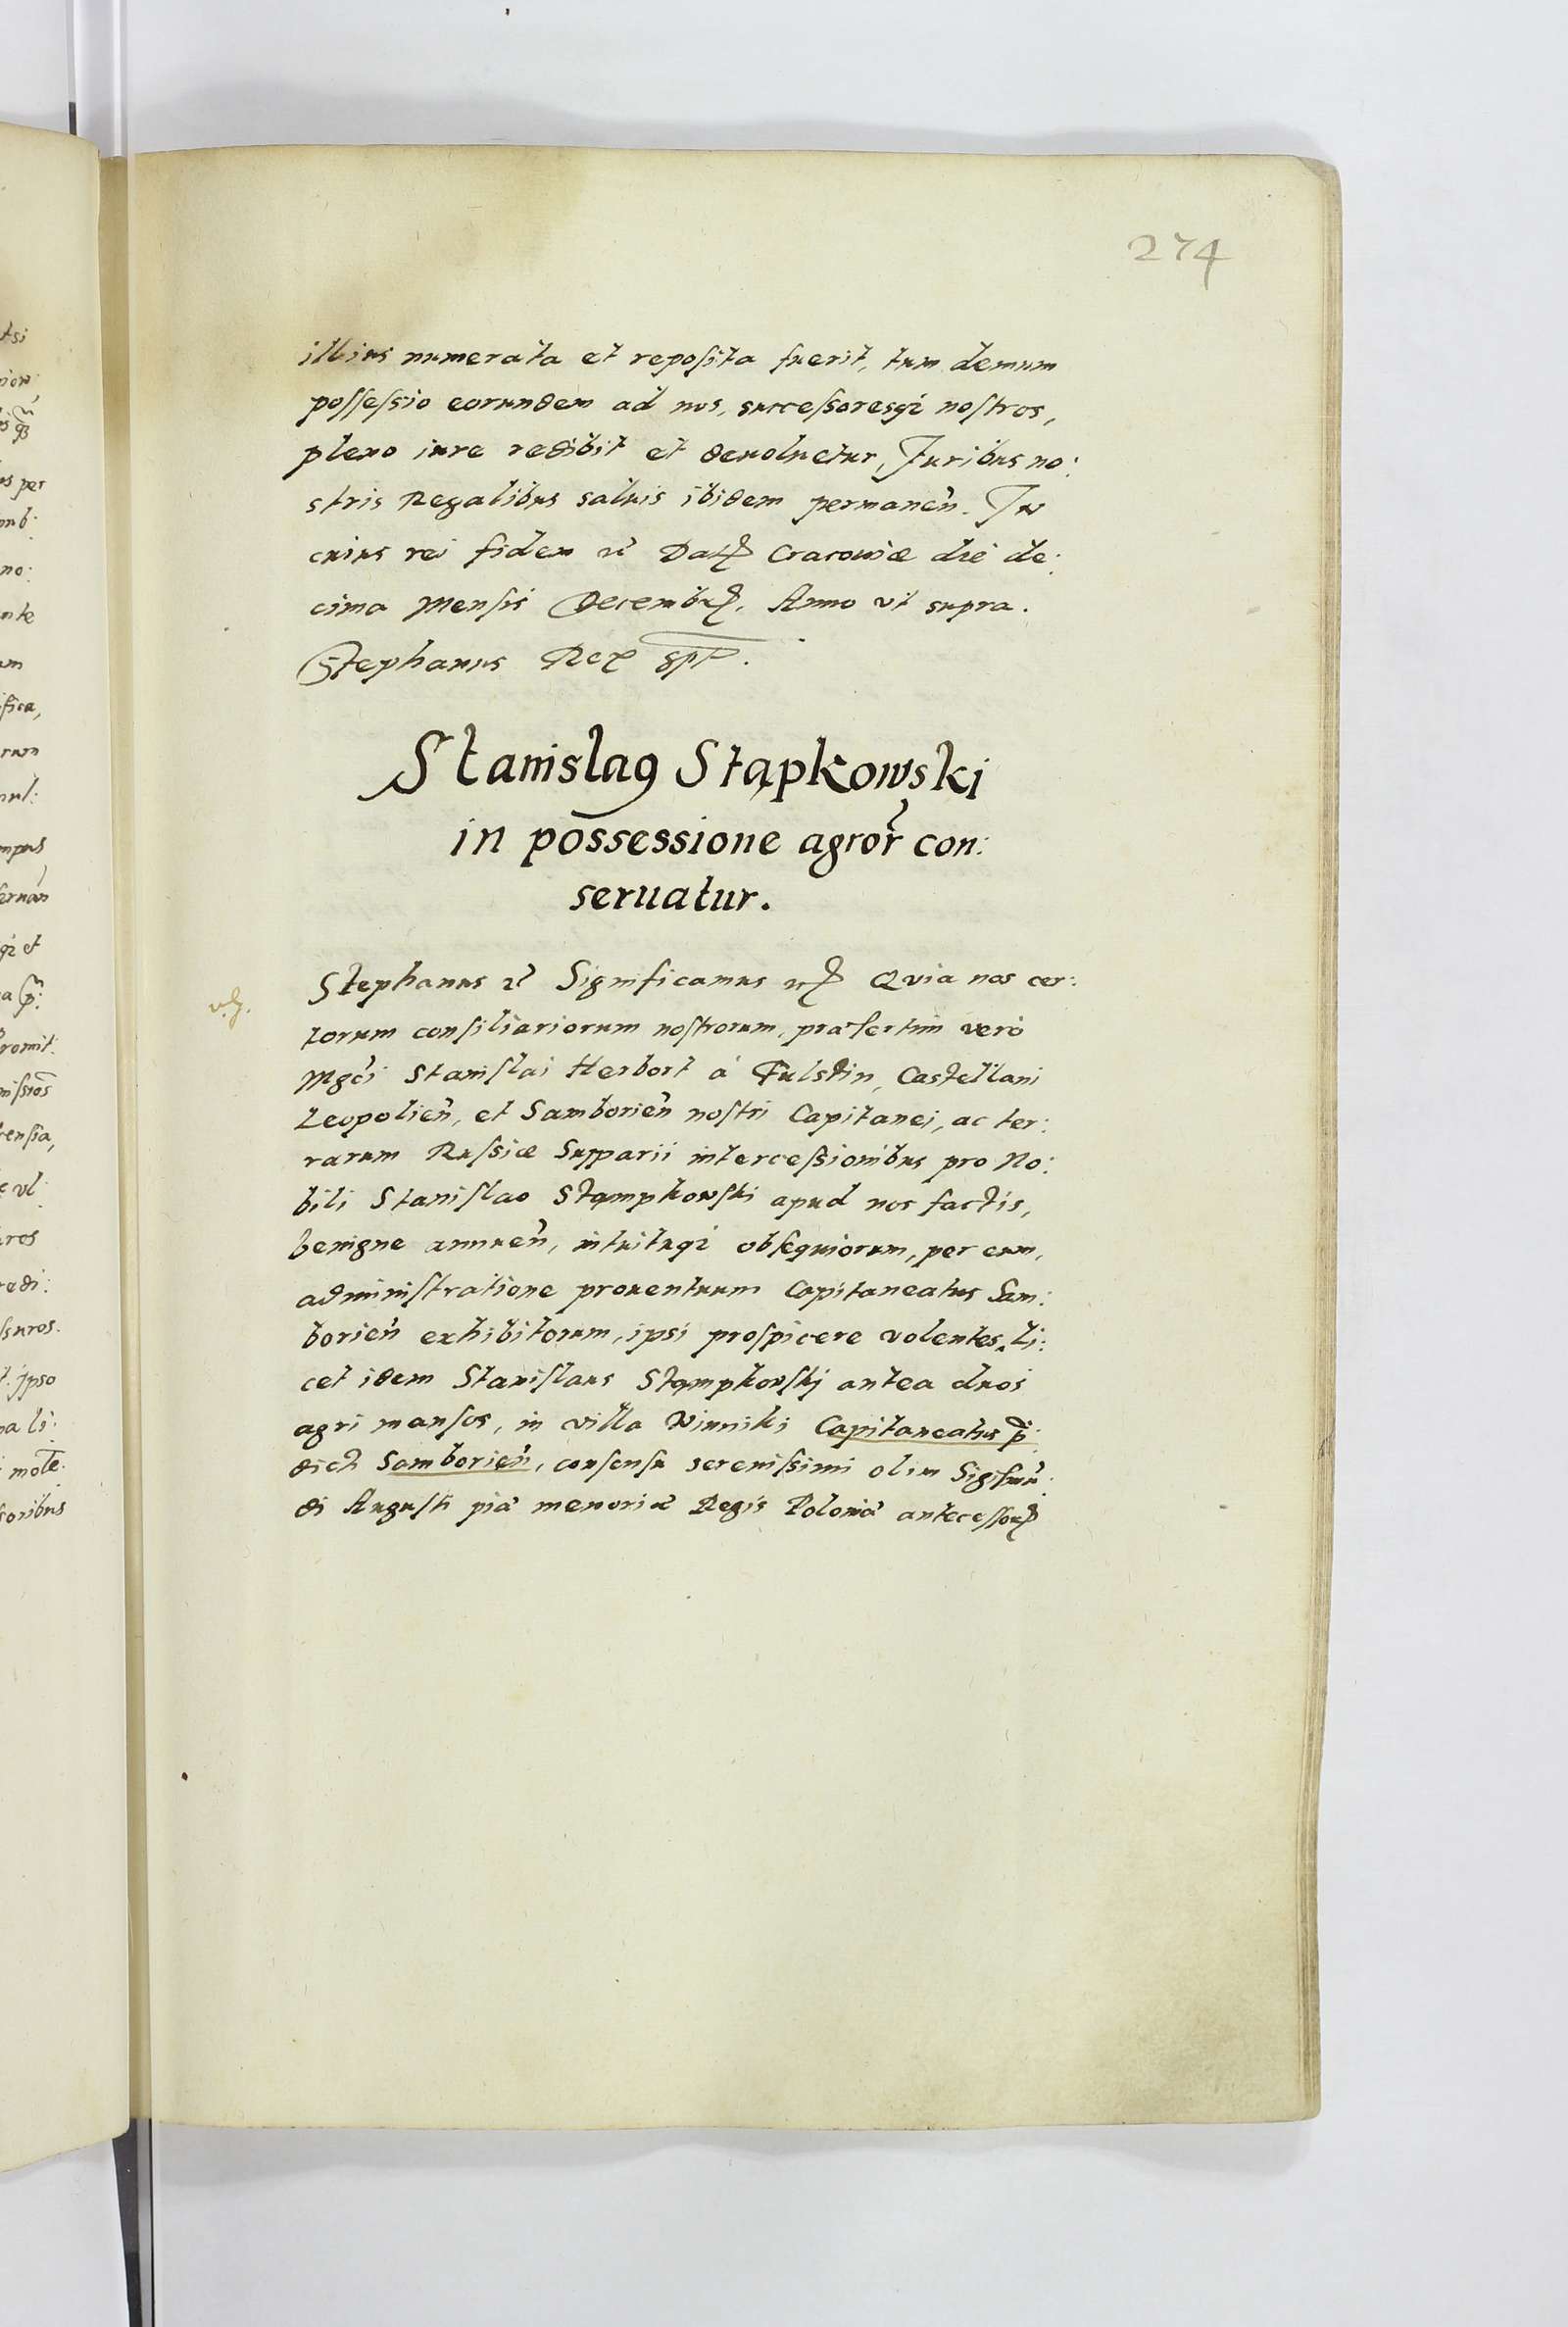 274
illius numerata et reposita fuerit, tum demum
possessio eorundem ad nos, successoresq̃ nostros,
pleno iure redibit et deuoluetur, Juribus no:
stris Regalibus saluis ibidem permaneñ. In
cuius rei fidem etc̃ Dat Cracouiæ die de:
cima Mensis Decemb, Anno vt supra.
Stephanus Rex sp̅t.
Stanislaꝰ Stąpkowski
in possessione agror̃ con:
seruatur.
Stephanus etc̃ Significamus etc Quia nos cer:
torum consiliariorum nostrorum, præsertim verò
Mgc̃i Stanislai Herbort à Fulstin, Castellani
Leopolieñ, et Samborieñ nostri Capitanei, ac ter:
rarum Russiæ Supparii intercessionibus pro No:
bili Stanislao Stąmpkowski apud nos factis,
benigne annueñ, intuituq̃ obsequiorum, per eum,
administratione prouentuum Capitaneatus Sam:
borieñ exhibitorum, ipsi prospicere volentes, Li:
cet idem Stanislaus Stąmpkowskj antea duos
agri mansos, in villa Winniki Capitaneatus p̃:
dict Samborieñ, consensu serenissimi olim Sigismũ:
di Augusti piæ memoriæ Regis Poloniæ antecessor